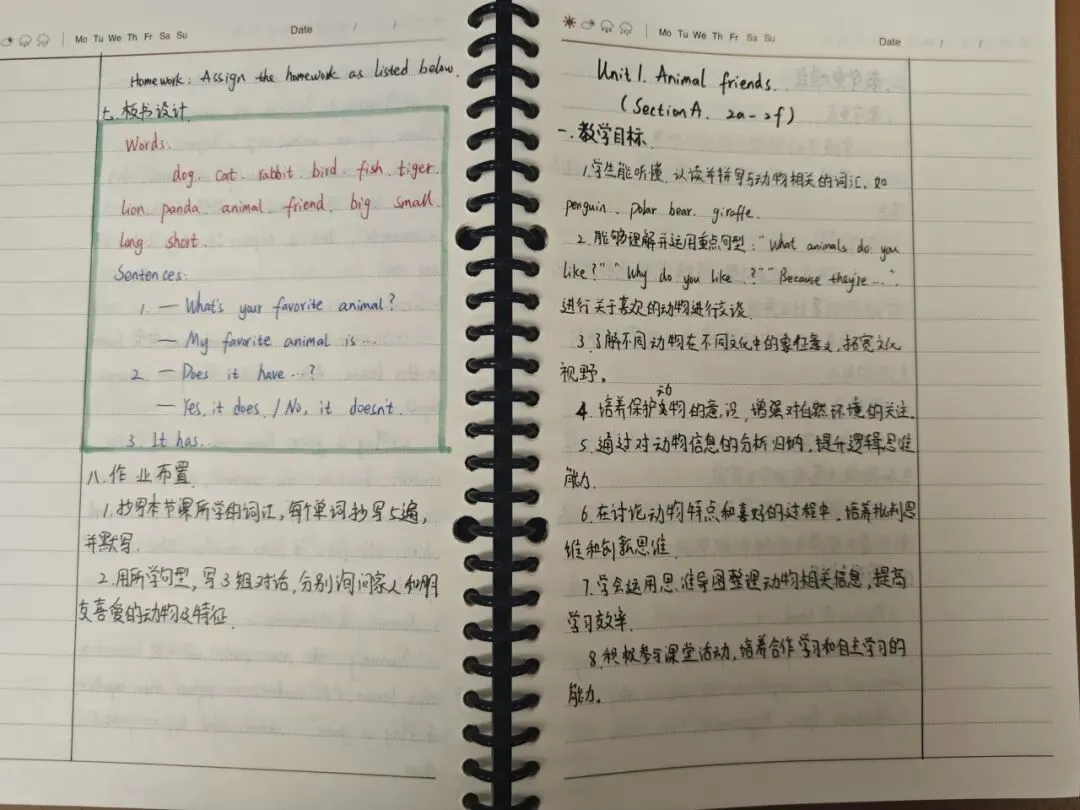 Mo Tu We Th Fr Sa Su
Date / /
Homework: Assign the homework as listed below.
七. 板书设计
Words:
dog. cat. rabbit. bird. fish. tiger.
lion. panda. animal. friend. big small.
long short.
Sentences:
1. — What's your favorite animal?
— My favorite animal is ...
2. — Does it have ...?
— Yes, it does. / No, it doesn't.
3. It has...
八. 作业布置
1. 抄写本节课所学的词汇, 每个单词抄写5遍,
并默写.
2. 用所学句型, 写3组对话, 分别询问家人和朋
友喜爱的动物及特征.
Mo Tu We Th Fr Sa Su
Date / /
Unit 1. Animal friends.
(Section A. 2a-2f)
一. 教学目标.
1. 学生能听懂. 认读并拼写与动物相关的词汇, 如
penguin. polar bear. giraffe.
2. 能够理解并运用重点句型: "What animals do you
like?" "Why do you like ...?" "Because they're..."
进行关于喜欢的动物进行交谈.
3. 了解不同动物在不同文化中的象征意义, 拓宽文化
视野。
4. 培养保护动物的意识, 增强对自然环境的关注.
5. 通过对动物信息的分析归纳, 提升逻辑思维
能力.
6. 在讨论动物特点和喜好的过程中, 培养批判思
维和创新思维.
7. 学会运用思维导图整理动物相关信息, 提高
学习效率.
8. 积极参与课堂活动, 培养合作学习和自主学习的
能力。